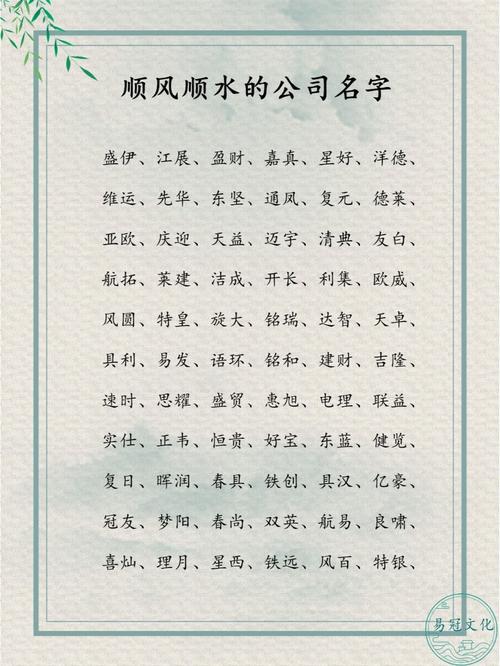 顺风顺水的公司名字
盛伊、江展、盈财、嘉真、星好、洋德、
维运、先华、东坚、通凤、复元、德莱、
亚欧、庆迎、天益、迈宇、清典、友白、
航拓、莱建、洁成、开长、利集、欧威、
风圆、特皇、旋大、铭瑞、达智、天卓、
具利、易发、语环、铭和、建财、吉隆、
速时、思耀、盛贸、惠旭、电理、联益、
实仕、正韦、恒贵、好宝、东蓝、健览、
复日、晖润、春具、铁创、具汉、亿豪、
冠友、梦阳、春尚、双英、航易、良啸、
喜灿、理月、星西、铁远、风百、特银、
易冠文化